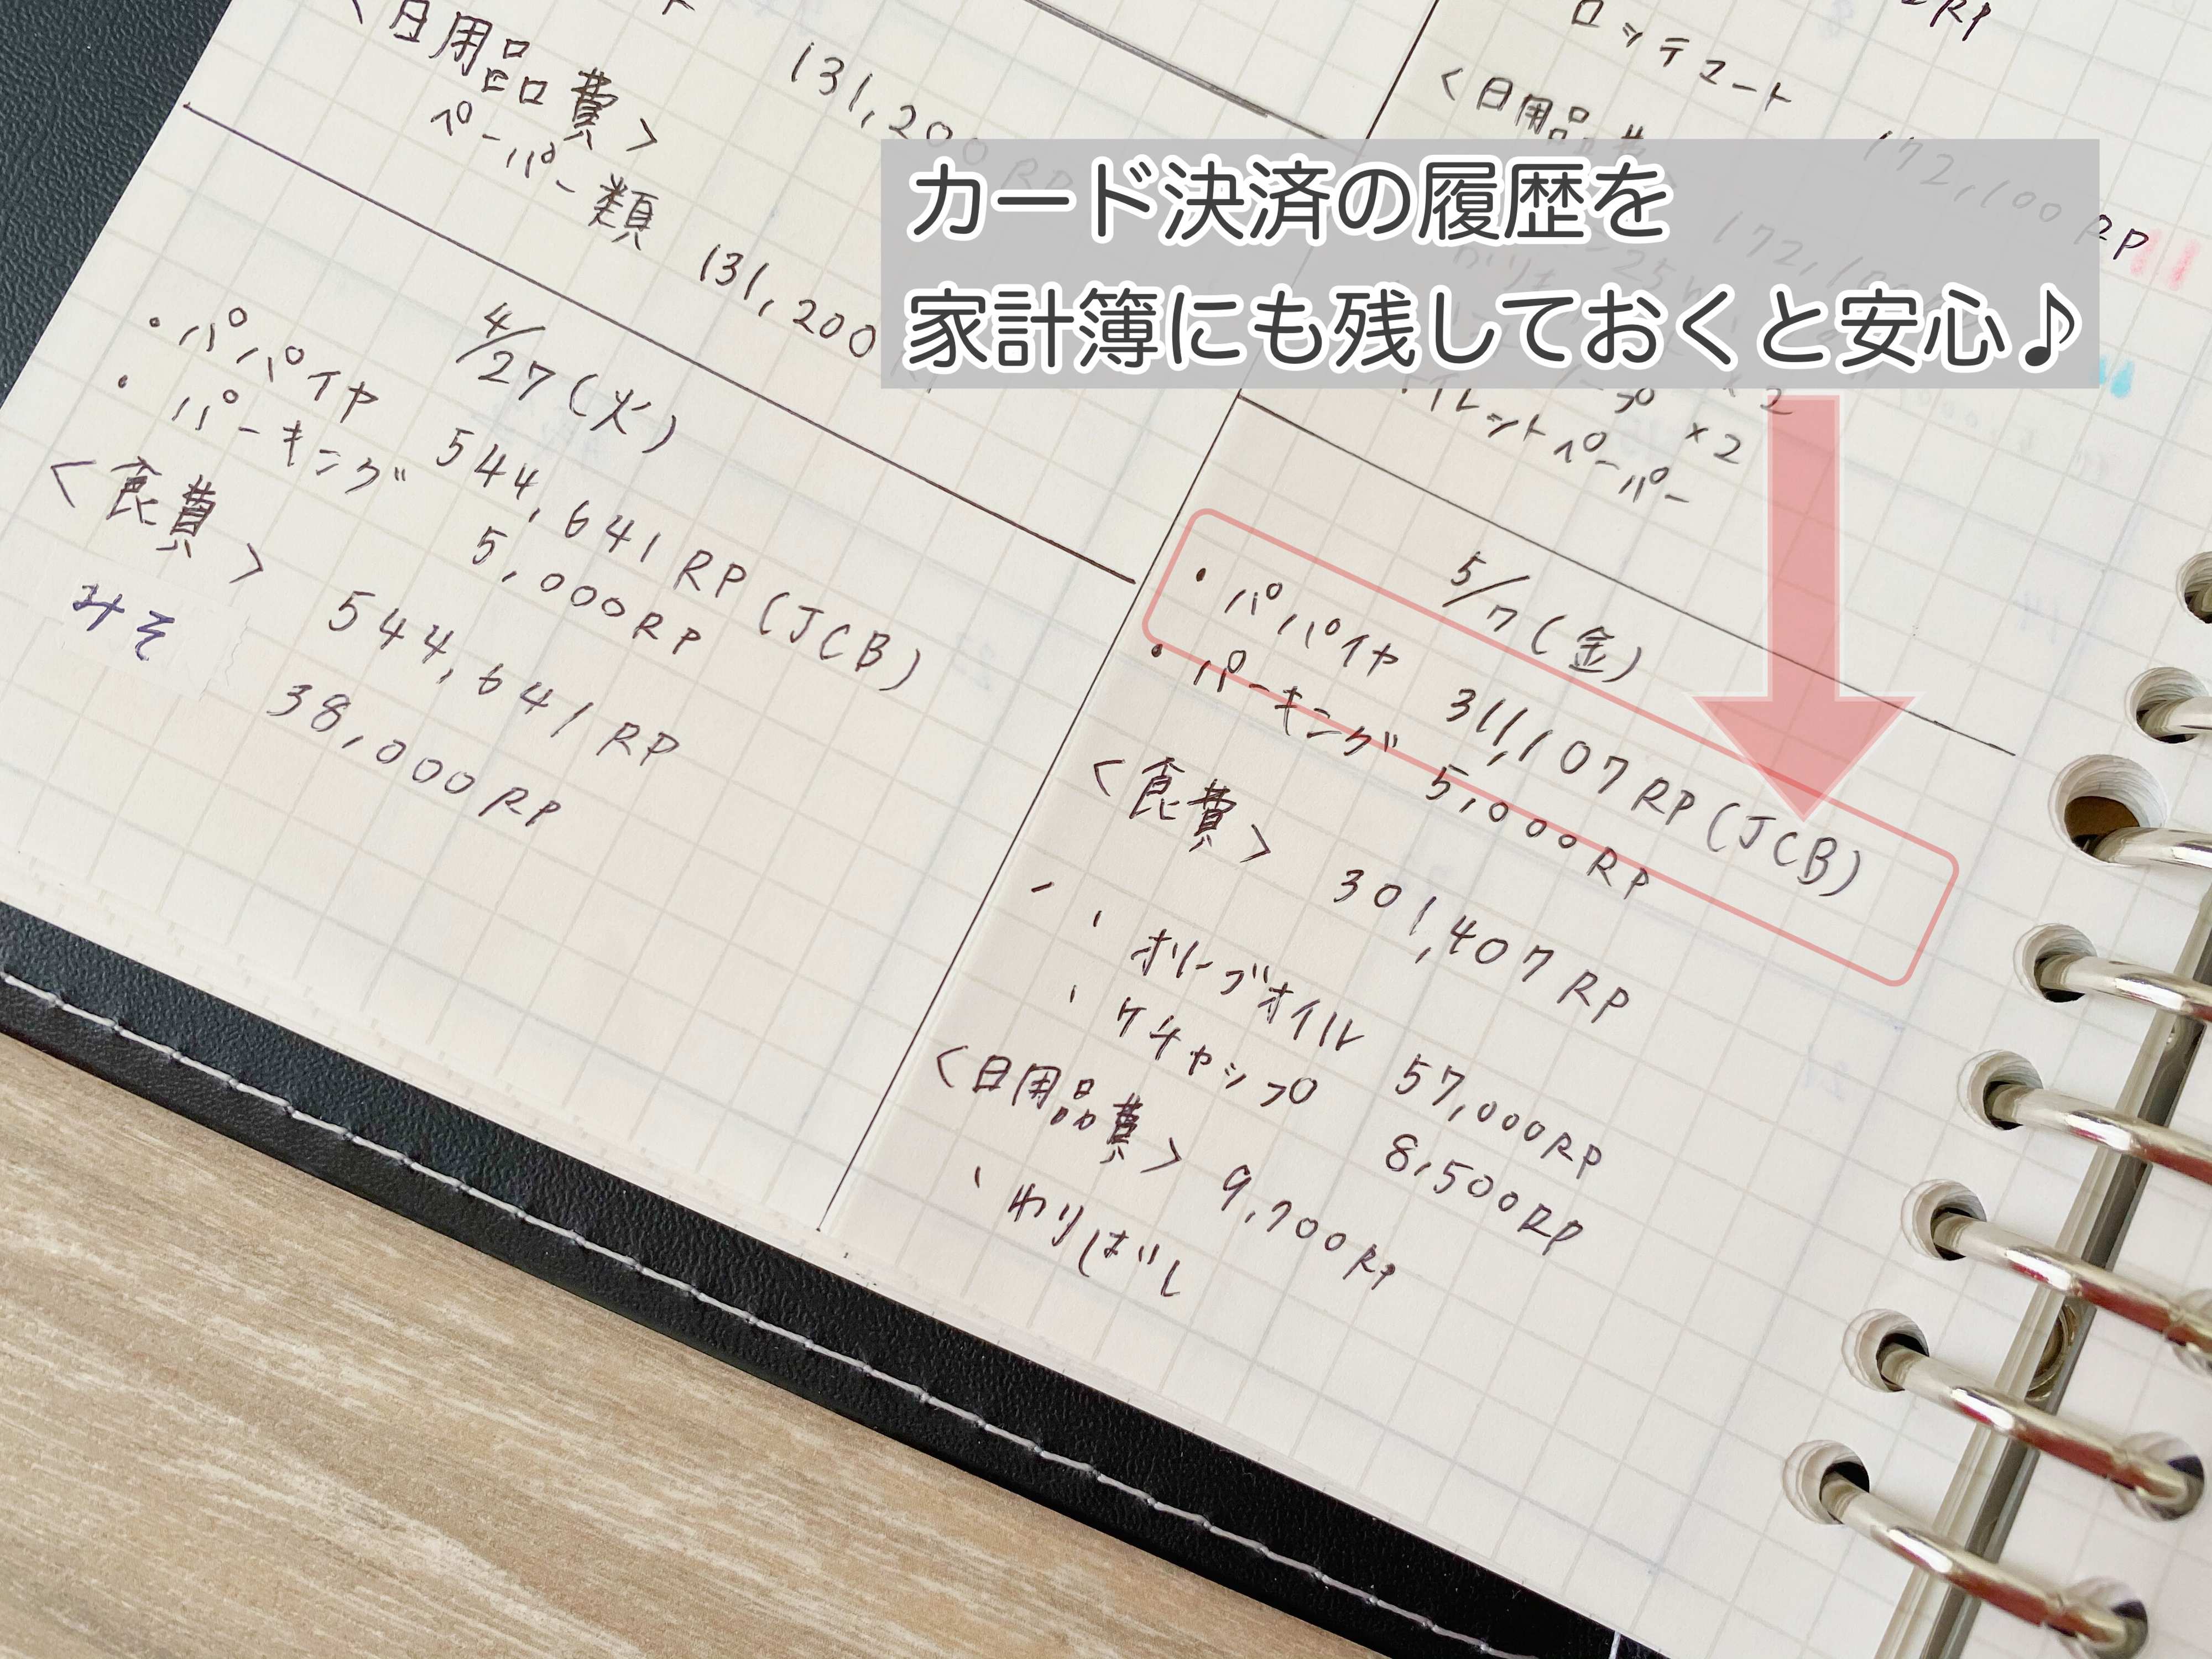 カード決済の履歴を
家計簿にも残しておくと安心♪
<日用品費> 131,200 RP
ペーパー類 131,200
4/27(火)
・パパイヤ 544,641RP(JCB)
・パーキング 5,000RP
<食費> 544,641RP
みそ 38,000RP
RP
ロッテマート
<日用品費 172,100 RP
×2
トイレットペーパー ×2
5/7(金)
・パパイヤ 311,107RP(JCB)
・パーキング 5,000RP
<食費> 301,407RP
、オリーブオイル 57,000RP
、ケチャップ 8,500RP
<日用品費> 9,700RP
、わりばし